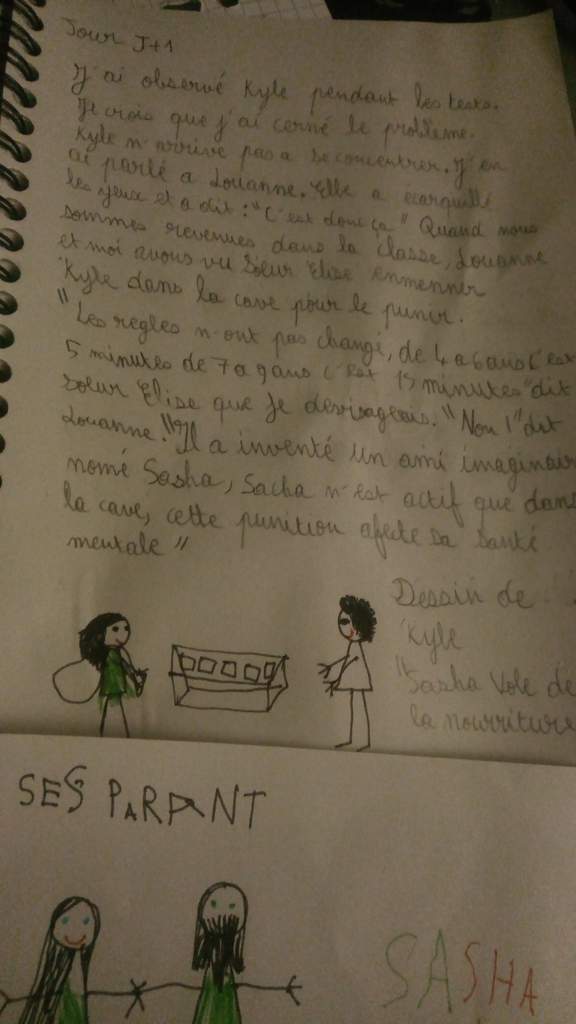 Jour J+1
J'ai observé Kyle pendant les tests.
Je crois que j'ai cerné le problème.
Kyle n'arrive pas a se concentrer. J'en
ai parlé a Louanne. Elle a écarquillé
les yeux et a dit : "C'est donc ça" Quand nous
sommes revenues dans la classe, Louanne
et moi avons vu Sœur Elise enmennir
Kyle dans la cave pour le punir.
"Les règles n'ont pas changé, de 4 a 6 ans c'est
5 minutes de 7 a 9 ans c'est 15 minutes" dit
Sœur Elise que je devisageais. "Non !" dit
Louanne. "Il a inventé un ami imaginair
nomé Sasha, Sacha n'est actif que dans
la cave, cette punition afecte sa santé
mentale"
Dessin de
Kyle
"Sasha Vole de
la nourriture
SES PARANT
SASHA